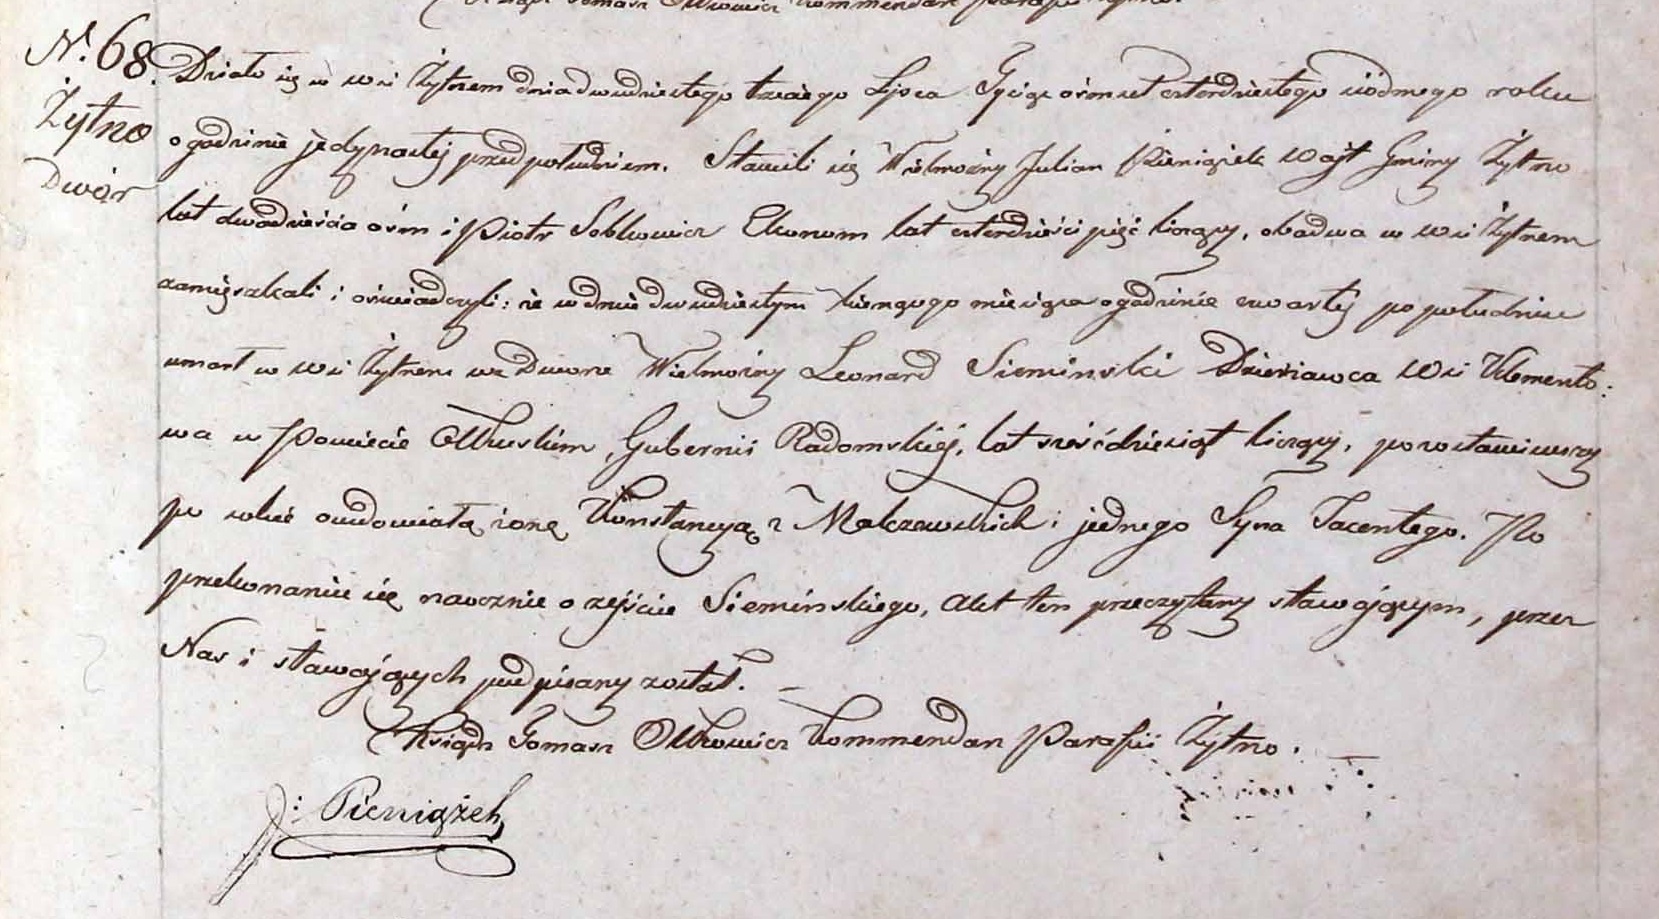 Ksiądz Tomasz Olkowicz Kommendarz Parafii Żytno.
N. 68.
Żytno
Dwór
Działo się w wsi Żytnem dnia dwudziestego trzeciego Lipca Tysiąc ośmset czterdziestego siódmego roku
o godzinie jedynastej przed południem. Stawili się Wielmożny Julian Pieniążek Wójt Gminy Żytno
lat dwadzieścia ośm i Piotr Sobkowicz Ekonom lat czterdzieści pięć liczący, obadwa w wsi Żytnem
zamięszkali i oświadczyli: że w dniu dwudziestym bieżącego miesiąca o godzinie czwartej po południu
umarł w wsi Żytnem we Dworze Wielmożny Leonard Siemiński Dzierżawca wsi Klemento:
wa w Powiecie Olkuskim, Gubernii Radomskiej, lat sześćdziesiąt liczący, pozostawiwszy
po sobie owdowiałą żonę Konstancyą z Malczewskich i jednego Syna Jacentego. Po
przekonaniu się naocznie o zejściu Siemińskiego, Akt ten przeczytany stawającym, przez
Nas i stawających podpisany został. —
Ksiądz Tomasz Olkowicz Kommendarz Parafii Żytno. —
J: Pieniążek